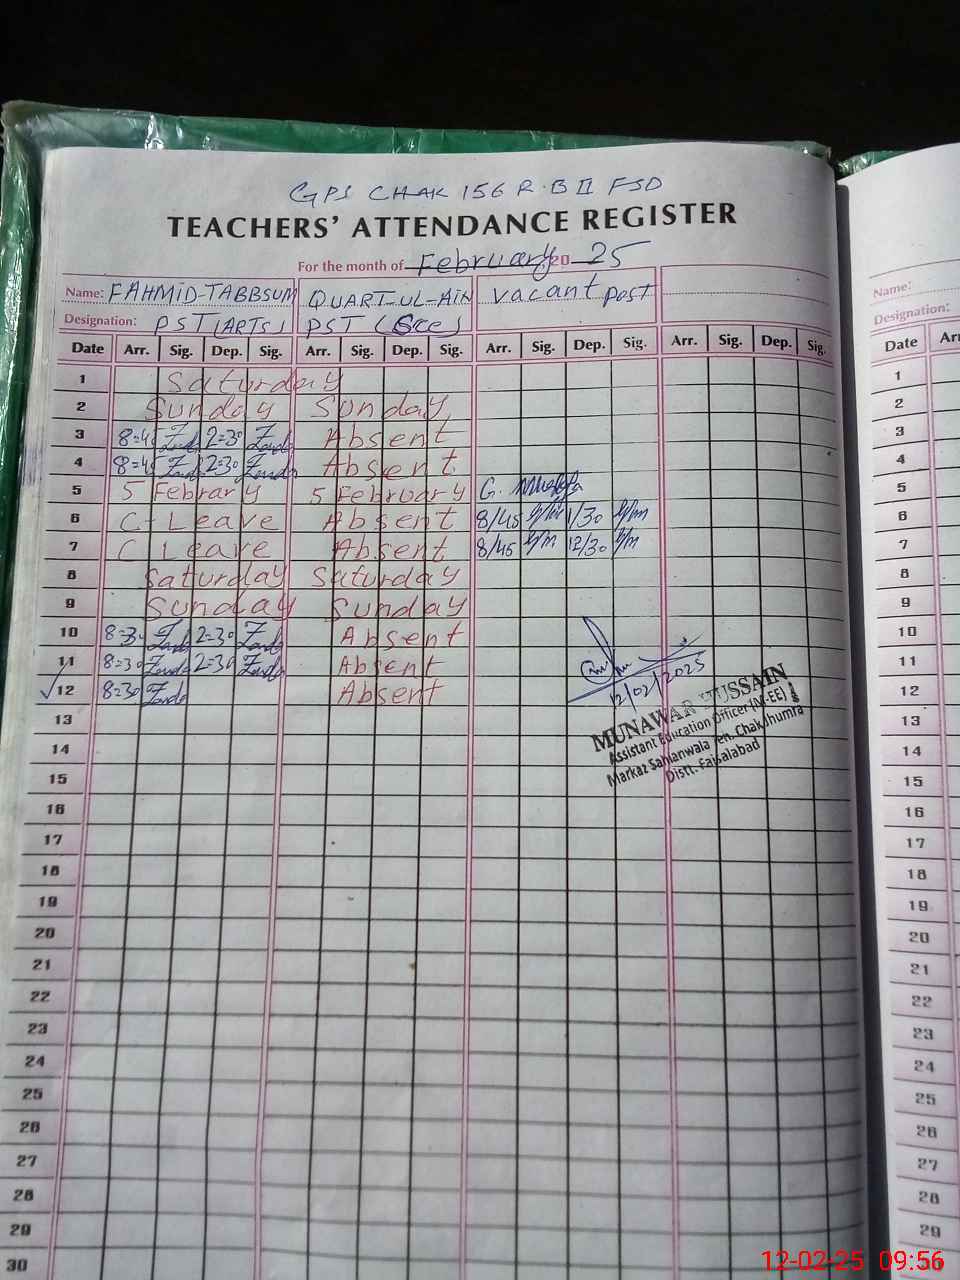 GPS CHAK 156 R.B II FSD
TEACHERS' ATTENDANCE REGISTER
For the month of February 20 25
Name: FAHMID-TABBSUM QUART-UL-AIN vacant post
Designation: PST (ARTS) PST (Sce)
Date Arr. Sig. Dep. Sig. Arr. Sig. Dep. Sig. Arr. Sig. Dep. Sig. Arr. Sig. Dep. Sig.
1 Saturday
2 Sunday Sunday
3 8=45 2=30 Absent
4 8=45 2=30 Absent
5 5 Febrary 5 February G.
6 C-Leave Absent 8/45 1/30
7 C Leave Absent 8/45 12/30
8 Saturday Saturday
9 Sunday Sunday
10 8=30 2=30 Absent
11 8=30 2=30 Absent
12 8=30 Absent
12/02/2025
MUNAWAR HUSSAIN
Assistant Education Officer (M-EE)
Markaz Sahianwala Teh. Chak Jhumra
Distt. Faisalabad
13
14
15
16
17
18
19
20
21
22
23
24
25
26
27
28
29
30
Name:
Designation:
Date Arr
1
2
3
4
5
6
7
8
9
10
11
12
13
14
15
16
17
18
19
20
21
22
23
24
25
26
27
28
29
12-02-25 09:56